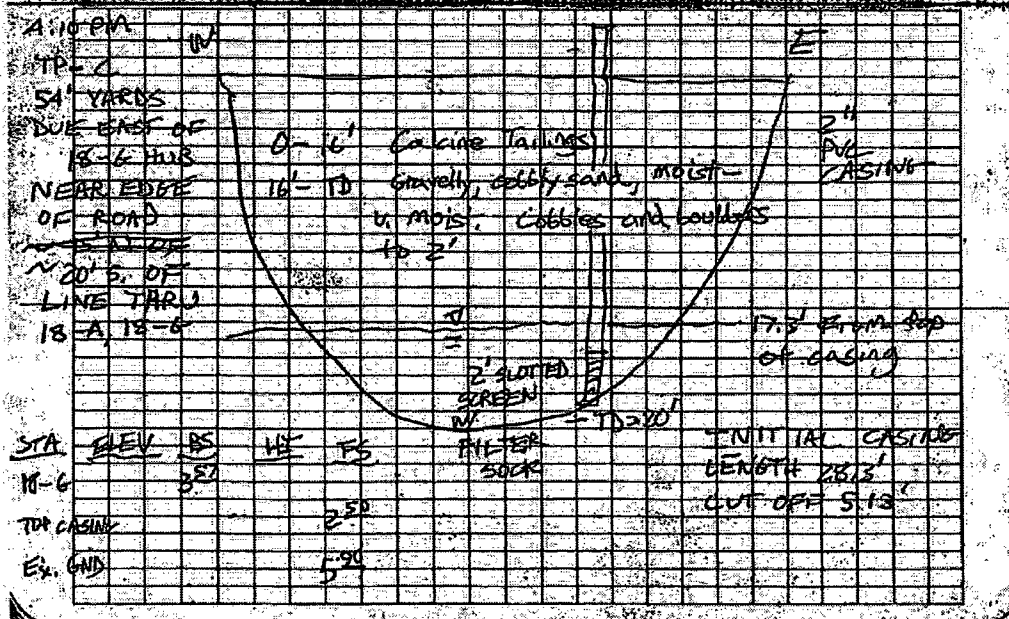 4:10 PM
W E
TP-C
54' YARDS
DUE EAST OF
18-6 HUB
NEAR EDGE
OF ROAD
~ 20' S. OF
LINE THRU
18-A, 18-6
0-16' Calcine Tailings
16'-TD Gravelly, cobbly sand, moist-
v. moist. Cobbles and boulders
to 2'
2"
PVC
CASING
17.3' From top
of casing
2' SLOTTED
SCREEN
W/
FILTER
SOCK
TD=20'
INITIAL CASING
LENGTH 28.3'
CUT OFF 5.13'
STA ELEV BS HI FS
18-6
TOP CASING 2.50
Ex. GND 5.90